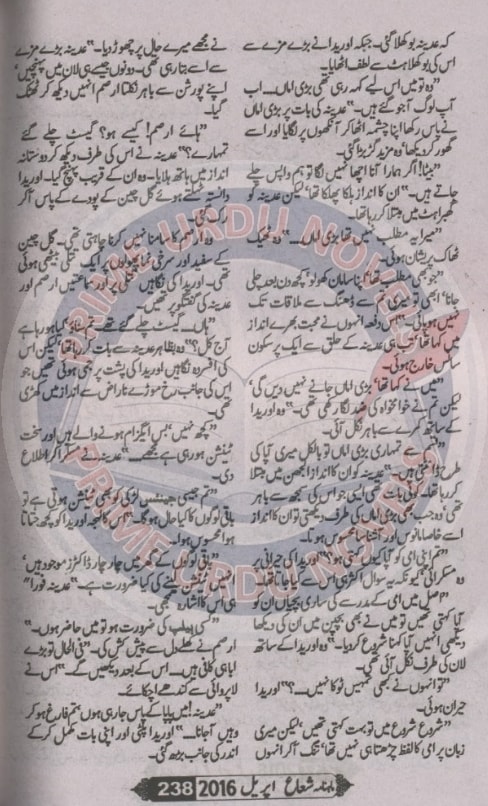 کہ عدینہ بوکھلا گئی۔ جبکہ اوریدا نے بڑے مزے سے
اس کی بوکھلاہٹ سے لطف اٹھایا۔
”وہ تو میں اس لیے کہہ رہی تھی بڑی اماں۔ اب
آپ لوگ آجو گئے ہیں۔“ عدینہ کی بات پر بڑی اماں
نے پاس رکھا اپنا چشمہ اٹھا کر آنکھوں پر لگایا اور اسے
گھور کر دیکھا‘ وہ مزید گڑبڑا گئی۔
”بیٹا! اگر ہمارا آنا اچھا نہیں لگا تو ہم واپس چلے
جاتے ہیں۔“ ان کا انداز ہلکا پھلکا تھا‘ لیکن عدینہ کو
گھبراہٹ میں مبتلا کر رہا تھا۔
”میرا یہ مطلب نہیں تھا بڑی اماں...“ وہ ٹھیک
ٹھاک پریشان ہوئی۔
”جو بھی مطلب تھا‘ اپنا سامان کھولو‘ کچھ دن بعد چلی
جانا‘ ابھی تو میری تم سے ڈھنگ سے ملاقات تک
نہیں ہوپائی۔“ اس دفعہ انہوں نے محبت بھرے انداز
میں کہا تھا‘ تب ہی عدینہ کے حلق سے ایک پرسکون
سانس خارج ہوئی۔
”میں نے کہا تھا‘ بڑی اماں جانے نہیں دیں گی‘
لیکن تم نے خوامخواہ کی ضد لگا رکھی تھی۔“ وہ اوریدا
کے ساتھ کمرے سے باہر نکل آئی۔
”قسم سے تمہاری بڑی اماں تو بالکل میری آپا کی
طرح ڈانٹتی ہیں۔“ عدینہ کو ان کا انداز الجھن میں مبتلا
کر رہا تھا۔ کوئی بات تھی ایسی جو اس کی سمجھ سے باہر
تھی‘ وہ جب بھی بڑی اماں کی طرف دیکھتی تو ان کا انداز
اسے خاصا مانوس اور آشنا سا محسوس ہوتا۔
”تم اپنی امی کو آپا کیوں کہتی ہو؟“ اوریدا کی حیرانی پر
وہ مسکرائی‘ کیونکہ یہ سوال اکثر ہی اس سے کیا جاتا تھا۔
”اصل میں امی کے مدرسے کی ساری بچیاں ان کو
آپا کہتی تھیں تو میں نے بھی بچپن میں ان کی دیکھا
دیکھی انہیں آپا کہنا شروع کردیا۔“ وہ اوریدا کے ساتھ
لان کی طرف نکل آئی تھی۔
”تو انہوں نے کبھی تمہیں ٹوکا نہیں...؟“ اوریدا
حیران ہوئی۔
”شروع شروع میں تو بہت کہتی تھیں‘ لیکن میری
زبان پر امی کا لفظ چڑھتا ہی نہیں تھا‘ تنگ آکر انہوں
نے مجھے میرے حال پر چھوڑ دیا۔“ عدینہ بڑے مزے
سے اسے بتا رہی تھی۔ دونوں جیسے ہی لان میں پہنچیں‘
اپنے پورشن سے باہر نکلتا ارصم انہیں دیکھ کر ٹھٹک
گیا۔
”ہائے ارصم! کیسے ہو؟ گیسٹ چلے گئے
تمہارے؟“ عدینہ نے اس کی طرف دیکھ کر دوستانہ
انداز میں ہاتھ ہلایا۔ وہ ان کے قریب پہنچ گیا۔ اوریدا
دانستہ ٹہلتے ہوئے گل چین کے پودے کے پاس آکر
رک گئی۔
وہ ارصم کا سامنا نہیں کرنا چاہتی تھی۔ گل چین
کے سفید اور سرخی نما پھولوں پر ایک تتلی بیٹھی ہوئی
تھی۔ اوریدا کی نگاہیں تتلی پر اور سماعتیں ارصم اور
عدینہ کی گفتگو پر تھیں۔
”ہاں... گیسٹ چلے گئے تھے‘ تم سناؤ‘ کیا ہو رہا ہے
آج کل؟“ وہ بظاہر عدینہ سے بات کر رہا تھا‘ لیکن اس
کی افسردہ نگاہیں اوریدا کی پشت پر بھی ہوئی تھیں جو
اس کی جانب رخ موڑے ناراض سے انداز میں کھڑی
تھی۔
”کچھ نہیں‘ بس ایگزام ہونے والے ہیں اور سخت
ٹینشن ہو رہی ہے مجھے...“ عدینہ نے مسکرا کر اطلاع
دی۔
”تم جیسی جینئس لڑکی کو بھی ٹینشن ہوتی ہے تو
باقی لوگوں کا کیا حال ہوگا۔“ اس کا لہجہ اوریدا کو کچھ جتاتا
ہوا محسوس ہوا۔
”باقی لوگوں کے گھر میں چار چار ڈاکٹرز موجود ہیں‘
انہیں ٹینشن لینے کی کیا ضرورت ہے۔“ عدینہ فوراً
ہی اس کا اشارہ سمجھی۔
”کسی ہیلپ کی ضرورت ہو تو میں حاضر ہوں۔“
ارصم نے کھلے دل سے پیش کش کی۔ ”فی الحال تو بڑے
ابا ہی کافی ہیں... اس کے بعد دیکھیں گے۔“ اس نے
لاپروائی سے کندھے اچکائے۔
”عدینہ! میں بابا کے پاس جا رہی ہوں‘ تم فارغ ہو کر
وہیں آجانا...“ اوریدا پلٹی اور اپنی بات مکمل کرکے
اندر کی جانب بڑھ گئی۔
ماہنامہ شعاع اپریل 2016 238
PRIME URDU NOVELS
PRIME URDU NOVELS